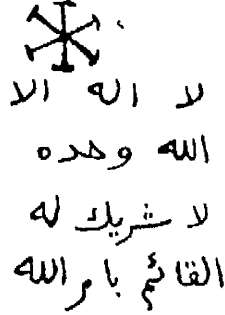 لا اله الا
الله وحده
لا شريك له
القائم بامر الله